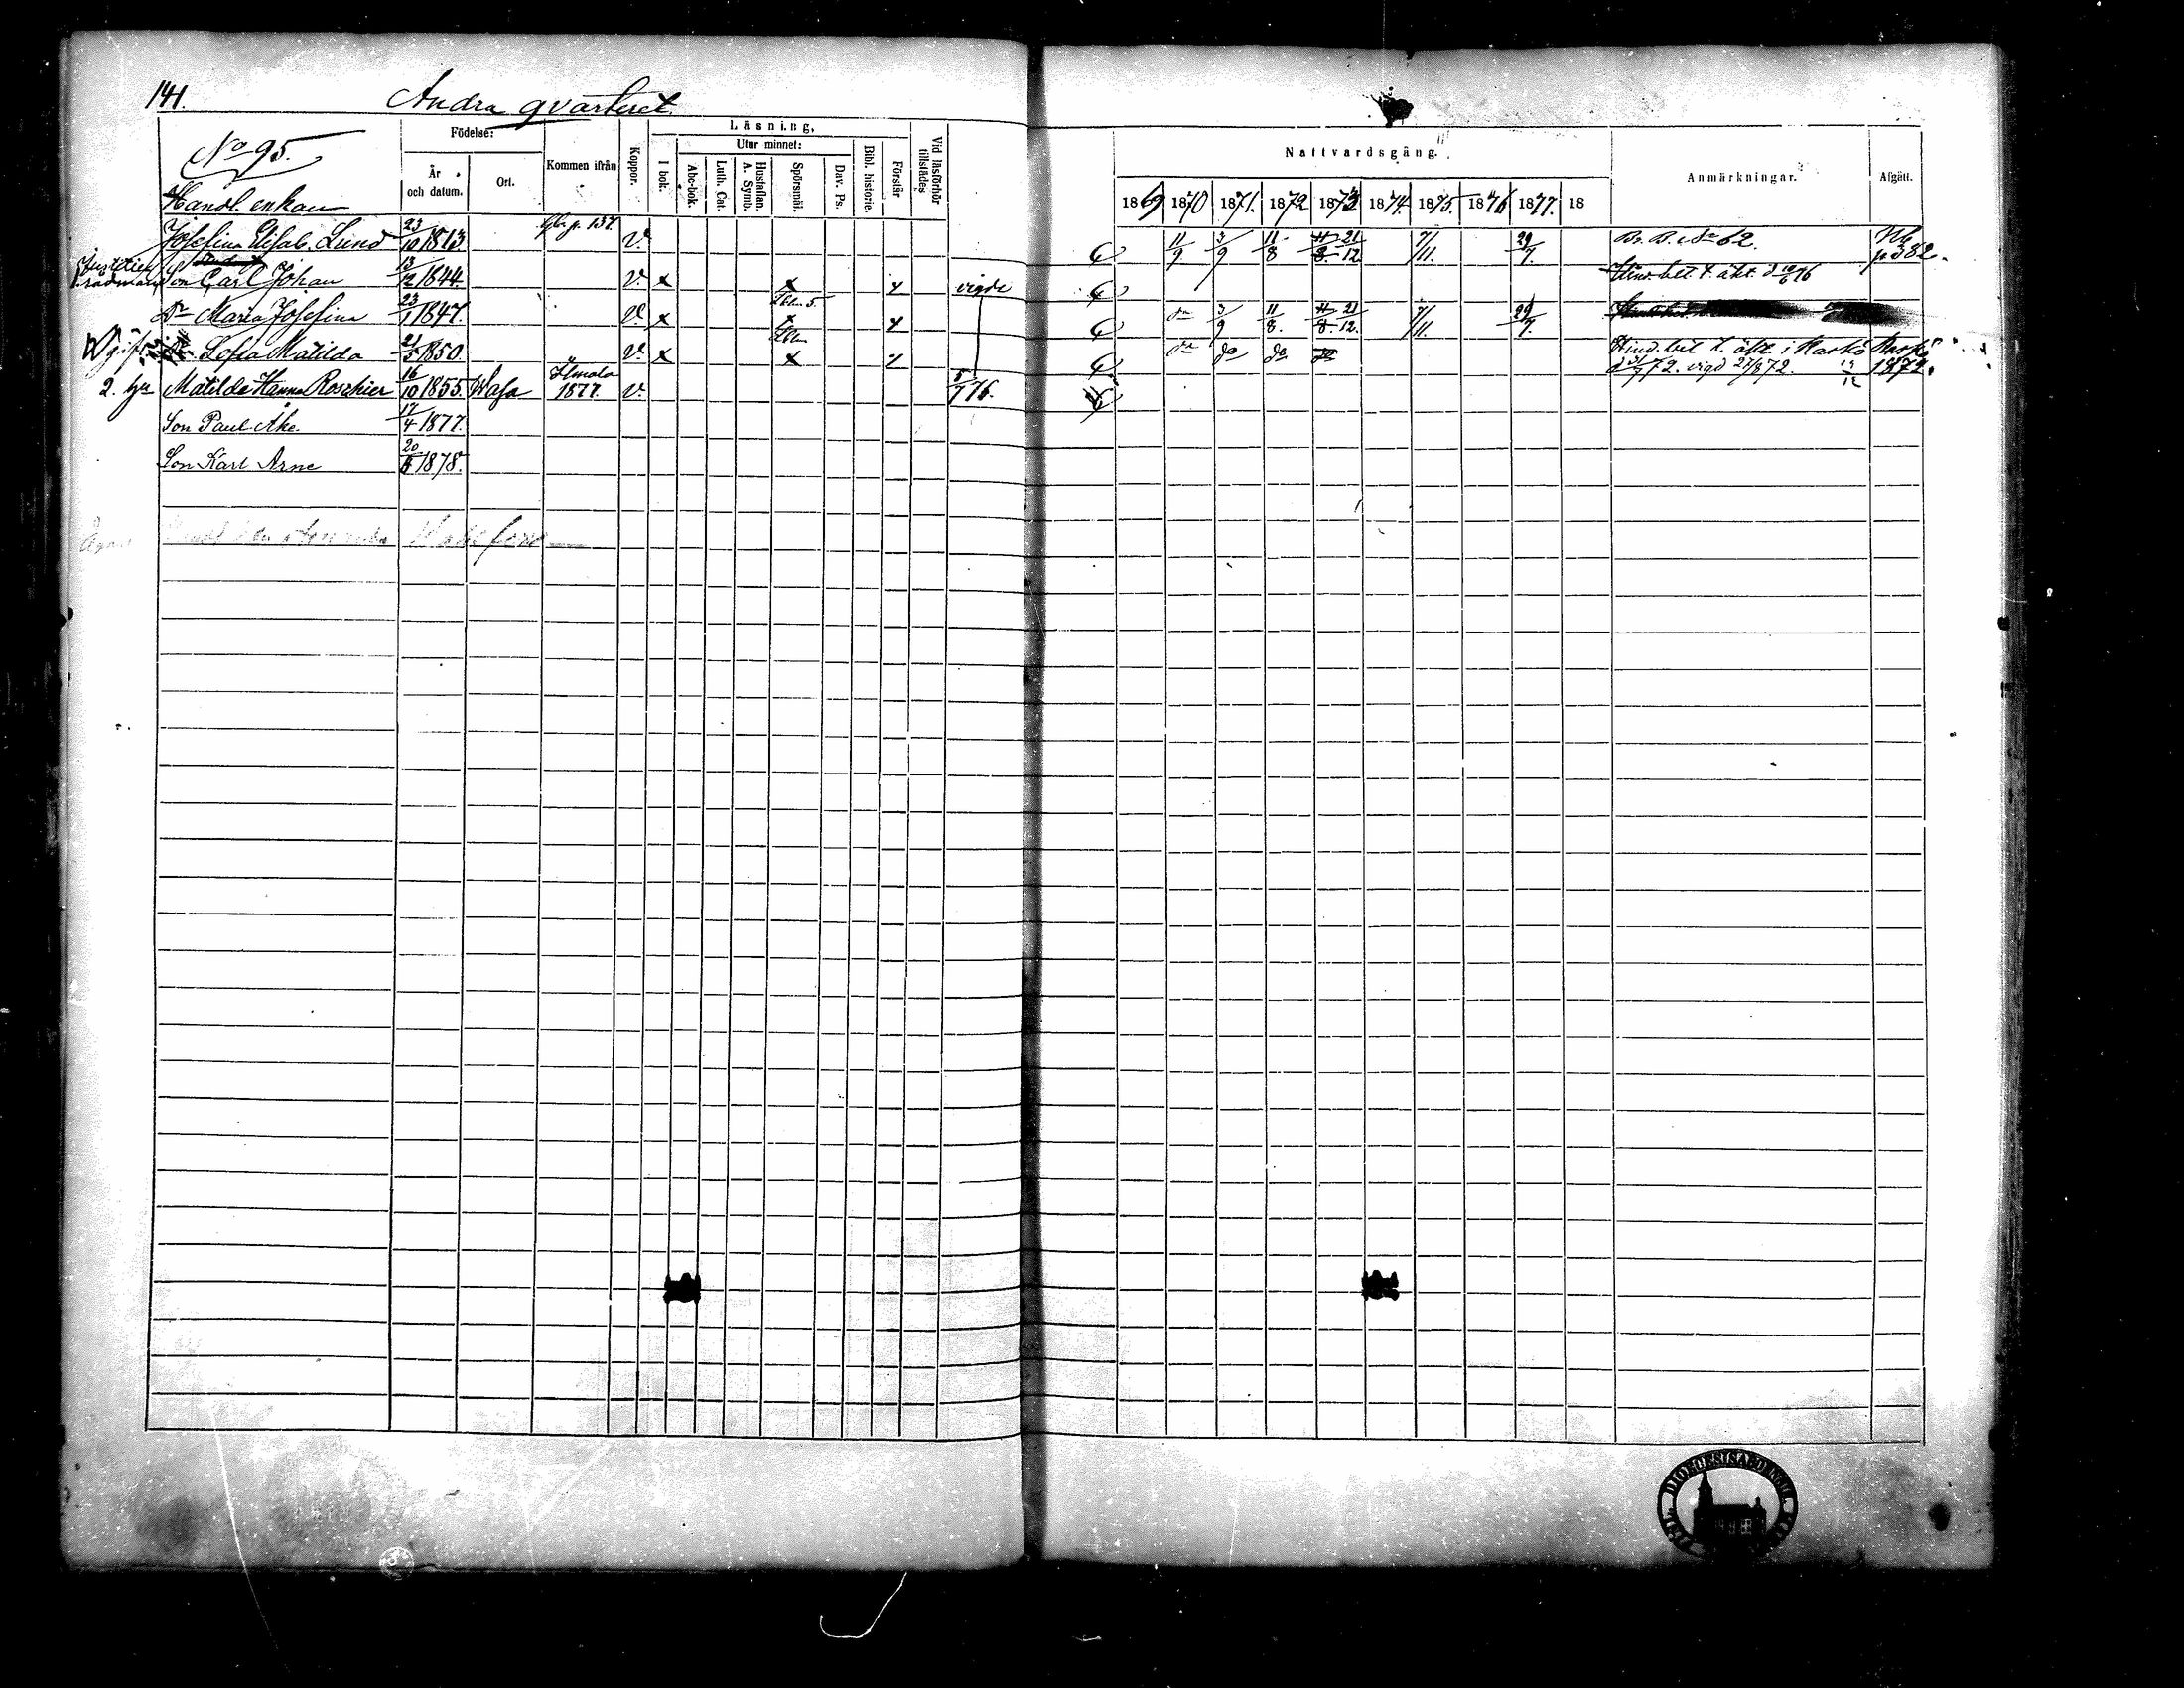 141. Andra qvarteret.
No 95.
Födelse:
År och datum.
Ort.
Kommen ifrån
Koppor.
Läsning,
Utur minnet:
I bok.
Abc-bok.
Luth. Cat.
Hustaflan. A. Symb.
Spörsmål.
Dav. Ps.
Bibl. historie.
Förstår
Vid läsförhör tillstädes
Nattvardsgång.
1869 1870 1871. 1872 1873 1874. 1875. 1876 1877. 18
Anmärkningar.
Afgått.
Handl. enkan
Josefina Elisab. Lund 23/10 1813 p. 137. v. 11/9 3/9 11/8 11/8 21/12 7/11. 29/7. No 62. p 382.
Justitie rådman Son Carl Johan 13/2 1844 v. x x x vigde t. äkt. d. 10/6 76
Dr Maria Josefina 23/1 1847. v. x x x do 3/9 11/8. 11/8. 21/12. 7/11. 29/7.
gift Sofia Matilda 21/5 1850. v. x x x do do do do t. äkt. i Karkö
d 31/7 72. vigd 27/8 72. 1872.
2. hu Matilda Hanna Roschier 16/10 1855. Wasa Ilmola 1877. v. 5/7 76.
Son Paul Åke 17/4 1877.
Son Karl Arne 20/6 1878.